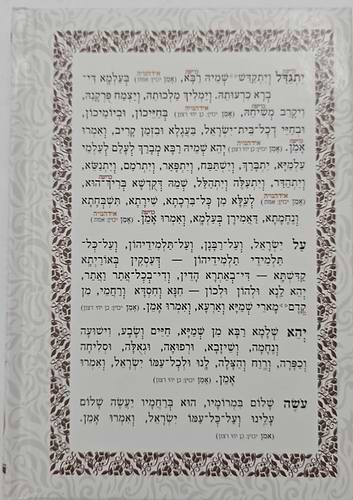 יִתְגַּדַּל וְיִתְקַדַּשׁ שְׁמֵיהּ רַבָּא, (אמן יכוין: אמת) בְּעָלְמָא דִּי־
בְרָא כִרְעוּתֵהּ. וְיַמְלִיךְ מַלְכוּתֵהּ, וְיַצְמַח פֻּרְקָנֵהּ,
וִיקָרֵב מְשִׁיחֵהּ, (אמן יכוין: כן יהי רצון) בְּחַיֵּיכוֹן, וּבְיוֹמֵיכוֹן,
וּבְחַיֵּי דְכָל־בֵּית־יִשְׂרָאֵל, בַּעֲגָלָא וּבִזְמַן קָרִיב, וְאִמְרוּ
אָמֵן. (אמן יכוין: כן יהי רצון) יְהֵא שְׁמֵיהּ רַבָּא מְבָרַךְ לְעָלַם לְעָלְמֵי
עָלְמַיָּא, יִתְבָּרַךְ, וְיִשְׁתַּבַּח, וְיִתְפָּאַר, וְיִתְרֹמַם, וְיִתְנַשֵּׂא,
וְיִתְהַדָּר, וְיִתְעַלֶּה, וְיִתְהַלָּל, שְׁמֵהּ דְּקֻדְשָׁא בְּרִיךְ־הוּא,
(אמן יכוין: אמת) לְעֵלָּא מִן כָּל־בִּרְכָתָא, שִׁירָתָא, תֻּשְׁבְּחָתָא
וְנֶחֱמָתָא, דַּאֲמִירָן בְּעָלְמָא, וְאִמְרוּ אָמֵן. (אמן יכוין: אמת)
עַל יִשְׂרָאֵל, וְעַל־רַבָּנָן, וְעַל־תַּלְמִידֵיהוֹן, וְעַל־כָּל־
תַּלְמִידֵי תַלְמִידֵיהוֹן — דְּעָסְקִין בְּאוֹרַיְתָא
קַדִּשְׁתָּא — דִּי־בְאַתְרָא הָדֵין, וְדִי־בְכָל־אֲתַר וַאֲתַר,
יְהֵא לָנָא וּלְהוֹן וּלְכוֹן — חִנָּא וְחִסְדָּא וְרַחֲמֵי, מִן
קֳדָם מָארֵי שְׁמַיָּא וְאַרְעָא, וְאִמְרוּ אָמֵן. (אמן יכוין: כן יהי רצון)
יְהֵא שְׁלָמָא רַבָּא מִן שְׁמַיָּא, חַיִּים וְשָׂבָע, וִישׁוּעָה
וְנֶחָמָה, וְשֵׁיזָבָא, וּרְפוּאָה, וּגְאֻלָּה, וּסְלִיחָה
וְכַפָּרָה, וְרֶוַח וְהַצָּלָה, לָנוּ וּלְכָל־עַמּוֹ יִשְׂרָאֵל, וְאִמְרוּ
אָמֵן. (אמן יכוין: כן יהי רצון)
עֹשֶׂה שָׁלוֹם בִּמְרוֹמָיו, הוּא בְּרַחֲמָיו יַעֲשֶׂה שָׁלוֹם
עָלֵינוּ וְעַל־כָּל־עַמּוֹ יִשְׂרָאֵל, וְאִמְרוּ אָמֵן.
(אמן יכוין: כן יהי רצון)